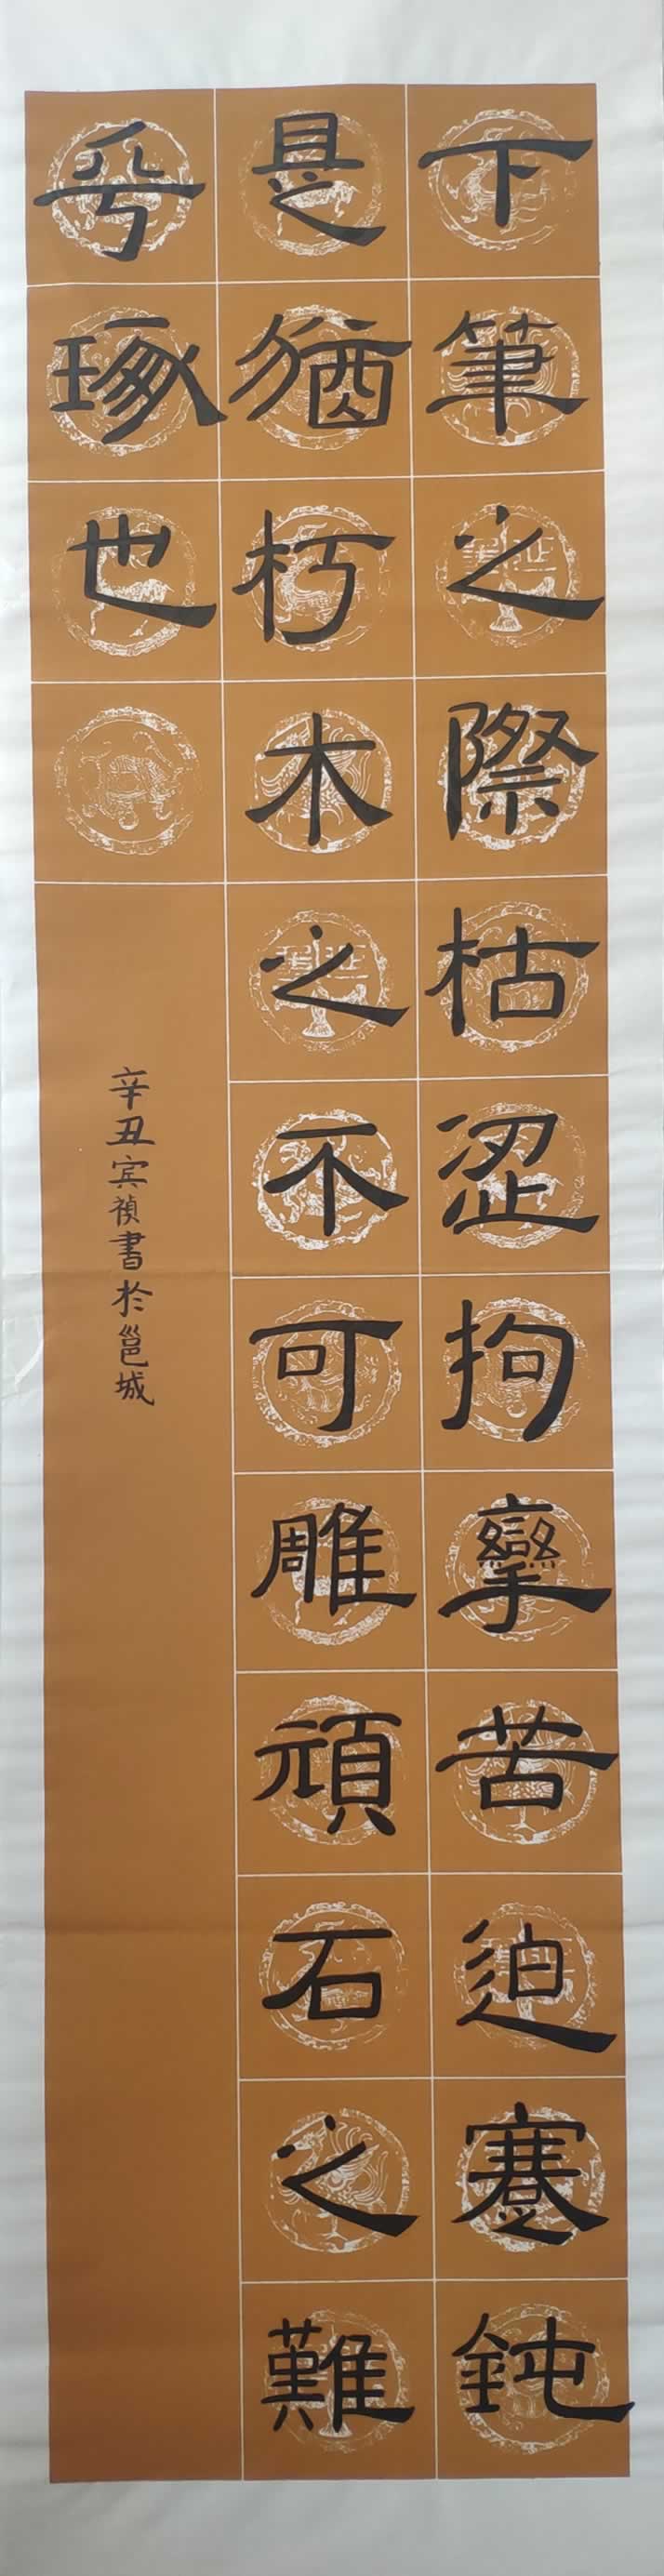 下筆之際枯涩拘攣苦迫蹇鈍
是猶朽木之不可雕頑石之難
乎琢也
辛丑宾禎書於邕城